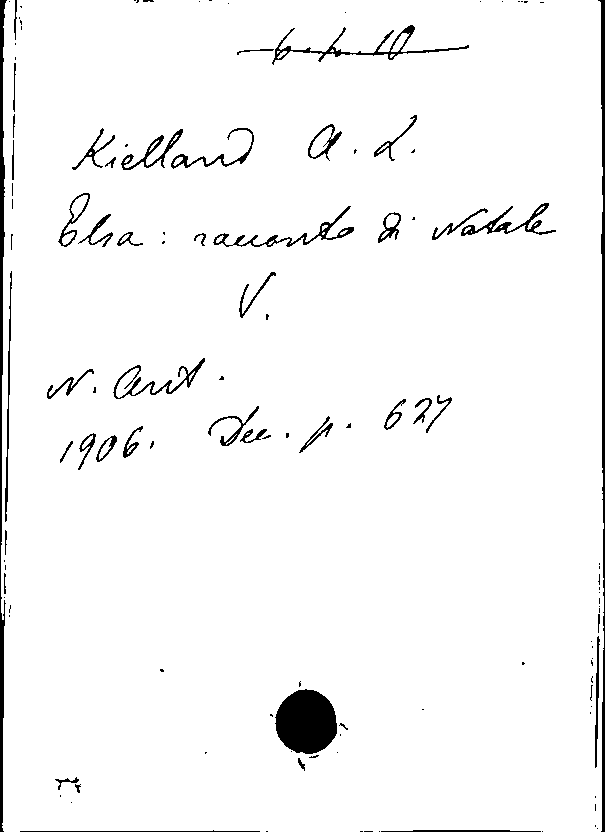 Kielland A. L.
Elsa: racconto di Natale
V.
N. Ant.
1906. Dec. p. 627